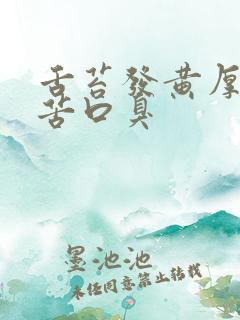 舌苔發黃厚
苦口臭
墨池池
未經同意禁止轉載